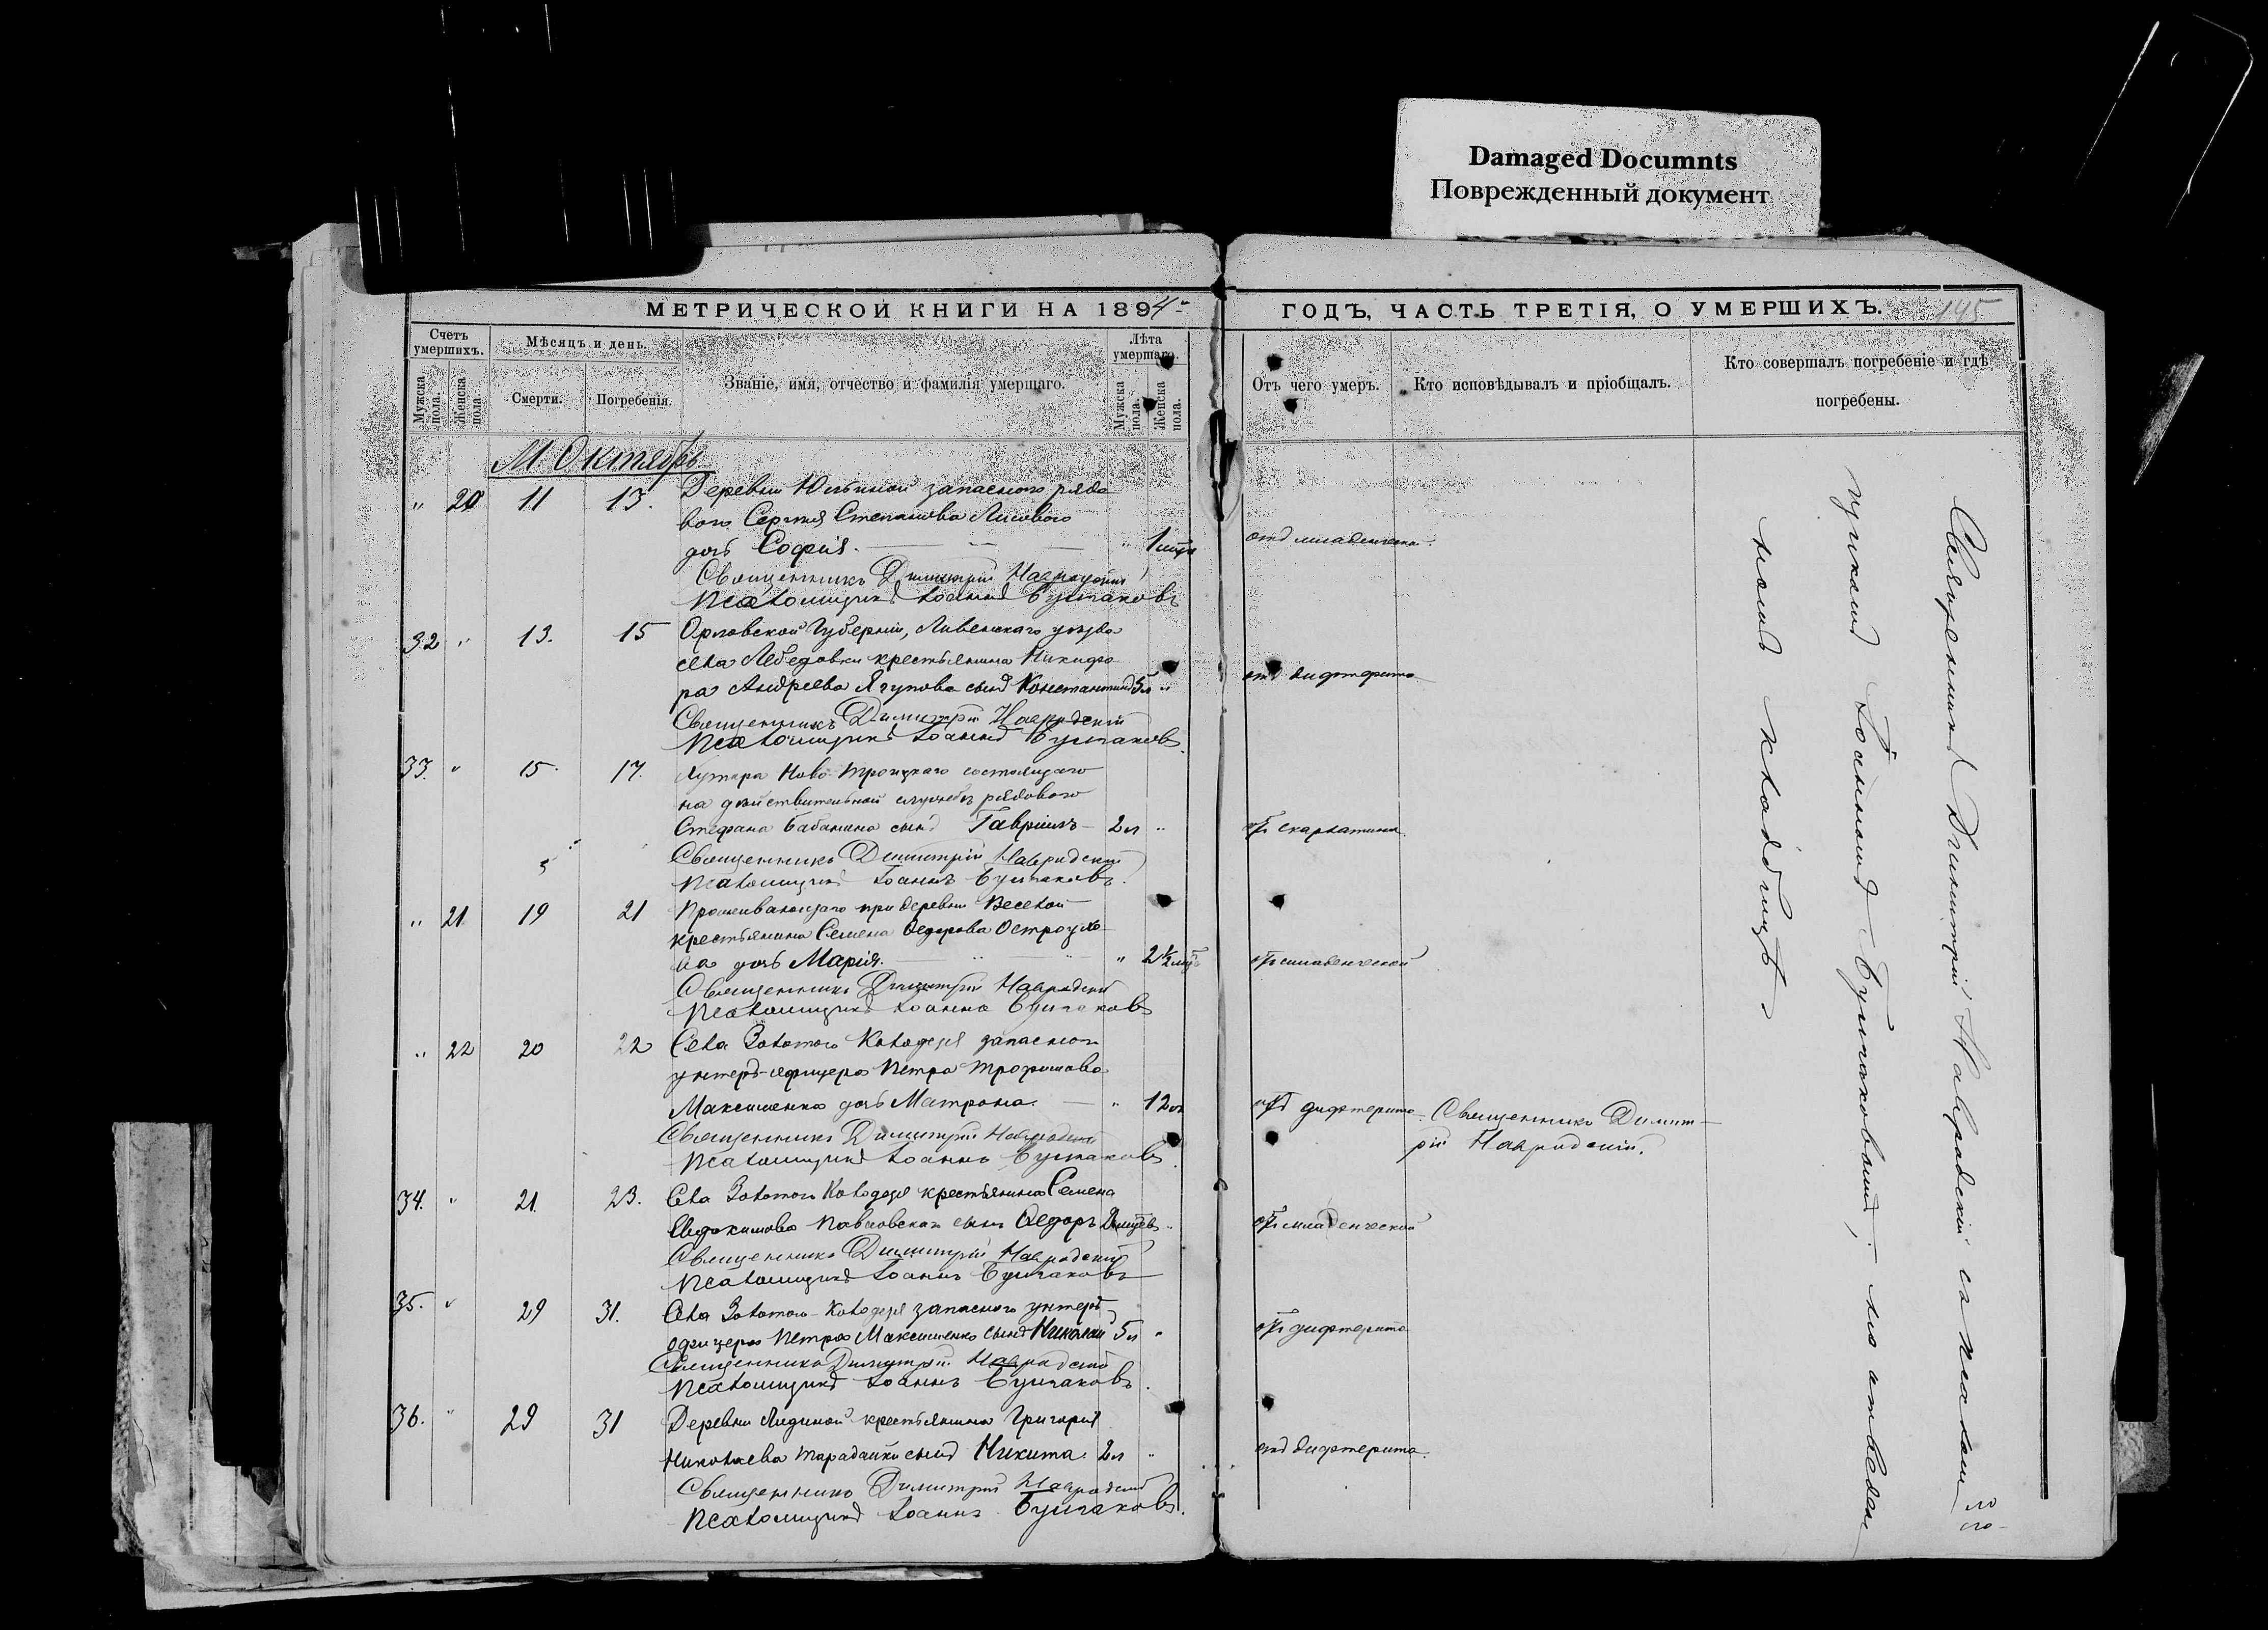 Damaged Documnts
Поврежденный документ
МЕТРИЧЕСКОЙ КНИГИ НА 1894
ГОДЪ, ЧАСТЬ ТРЕТІЯ, О УМЕРШИХЪ.
145
Счетъ умершихъ.
Мужска пола.
Женска пола.
Мѣсяцъ и день.
Смерти.
Погребенія.
Званіе, имя, отчество и фамилія умершаго.
Лѣта умершаго.
Мужска пола.
Женска пола.
Отъ чего умеръ.
Кто исповѣдывалъ и пріобщалъ.
Кто совершалъ погребеніе и гдѣ
погребены.
М. Октябрь
" 20 11 13. Деревни запаснаго рядо
вого Сергія Степанова Лисового
дочь Софія. " 1 отъ младенческ.
Священникъ Димитрій Навродскій
Псаломщикъ Іоаннъ Булгаковъ
32 " 13. 15 Орловской Губерніи, Ливенскаго уѣзда
села Лебедовки крестьянина Никифо
ра Андреева Ягупова сынъ Константинъ 5 л " отъ дифтерита
Священникъ Димитрій Навродскій
Псаломщикъ Іоаннъ Булгаковъ.
33. " 15. 17. Хутора Ново-Троицкаго состоящаго
на дѣйствительной службѣ рядового
Стефана Бабанина сынъ Гавріилъ 2 л " отъ скарлатины
Священникъ Димитрій Навродскій
Псаломщикъ Іоаннъ Булгаковъ.
" 21 19 21 Проживающаго при деревни Веселой
крестьянина Семена Ѳедорова Остроухо
ва дочь Марія. " 2½ отъ младенческой
Священникъ Димитрій Навродскій
Псаломщикъ Іоаннъ Булгаковъ
" 22 20 22 Села Золотого Колодезя запасного
унтеръ-офицера Петра Трофимова
Максименко дочь Матрона. " 12 л отъ дифтерита. Священникъ Димит-
рій Навродскій.
Священникъ Димитрій Навродскій
Псаломщикъ Іоаннъ Булгаковъ.
34. " 21 23. Села Золотого Колодезя крестьянина Семена
Евдокимова Павловскаго сынъ Ѳедоръ " отъ младенческой
Священникъ Димитрій Навродскій
Псаломщикъ Іоаннъ Булгаковъ
35. " 29 31. Села Золотого-Колодезя запасного унтеръ
офицера Петра Максименко сынъ Николай 5 л " отъ дифтерита
Священникъ Димитрій Навродскій
Псаломщикъ Іоаннъ Булгаковъ.
36. " 29 31 Деревни Лидиной крестьянина Григорія
Николаева Тарадайко сынъ Никита. 2 л " отъ дифтерита.
Священникъ Димитрій Навродскій
Псаломщикъ Іоаннъ Булгаковъ.
Священникъ Димитрій Навродскій съ псалом
щикомъ Іоанномъ Булгаковымъ, на отведен
номъ кладбищѣ.